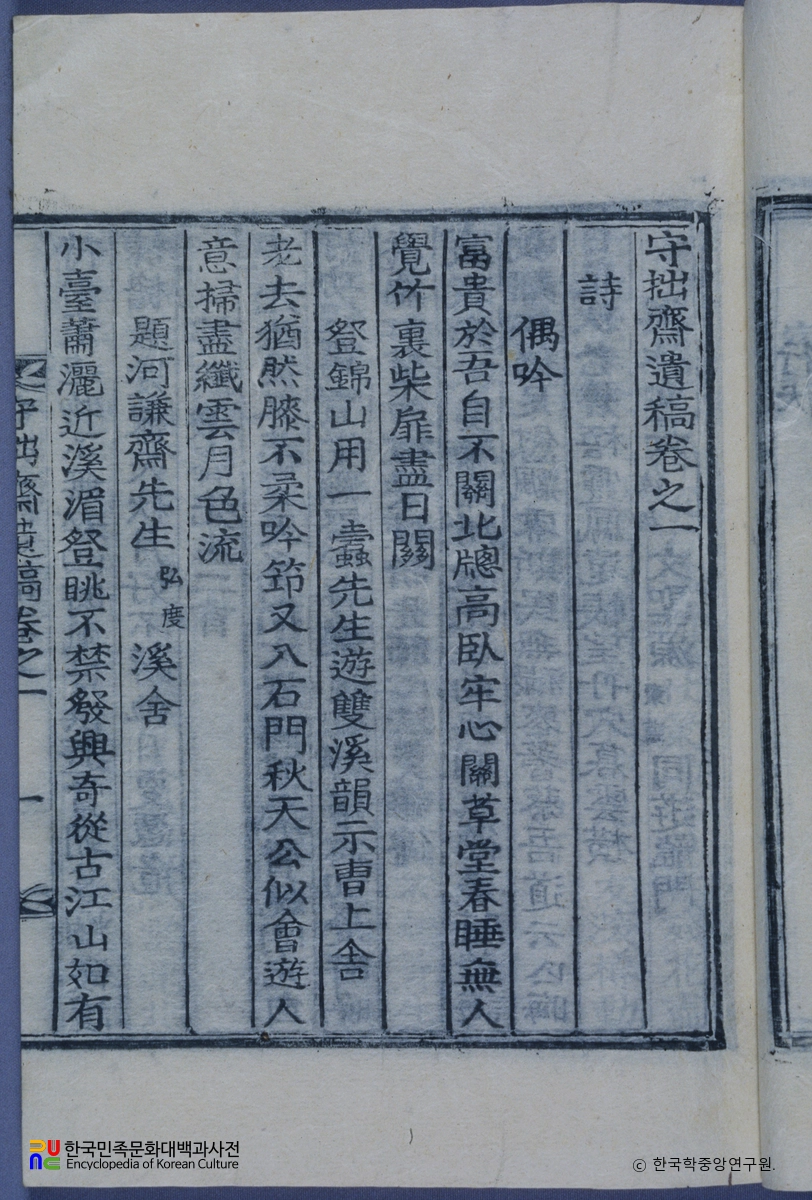 守拙齋遺稿卷之一
詩
偶吟
富貴於吾自不關北牕高臥牢心關草堂春睡無人
覺竹裏柴扉盡日關
登錦山用一蠧先生遊雙溪韻示曹上舍
老去猶然膝不柔吟笻又入石門秋天公似會遊人
意掃盡纖雲月色流
題河謙齋先生弘度溪舍
小臺蕭灑近溪湄登眺不禁發興奇從古江山如有
守拙齋遺稿卷之一 一
한국민족문화대백과사전
Encyclopedia of Korean Culture
© 한국학중앙연구원.